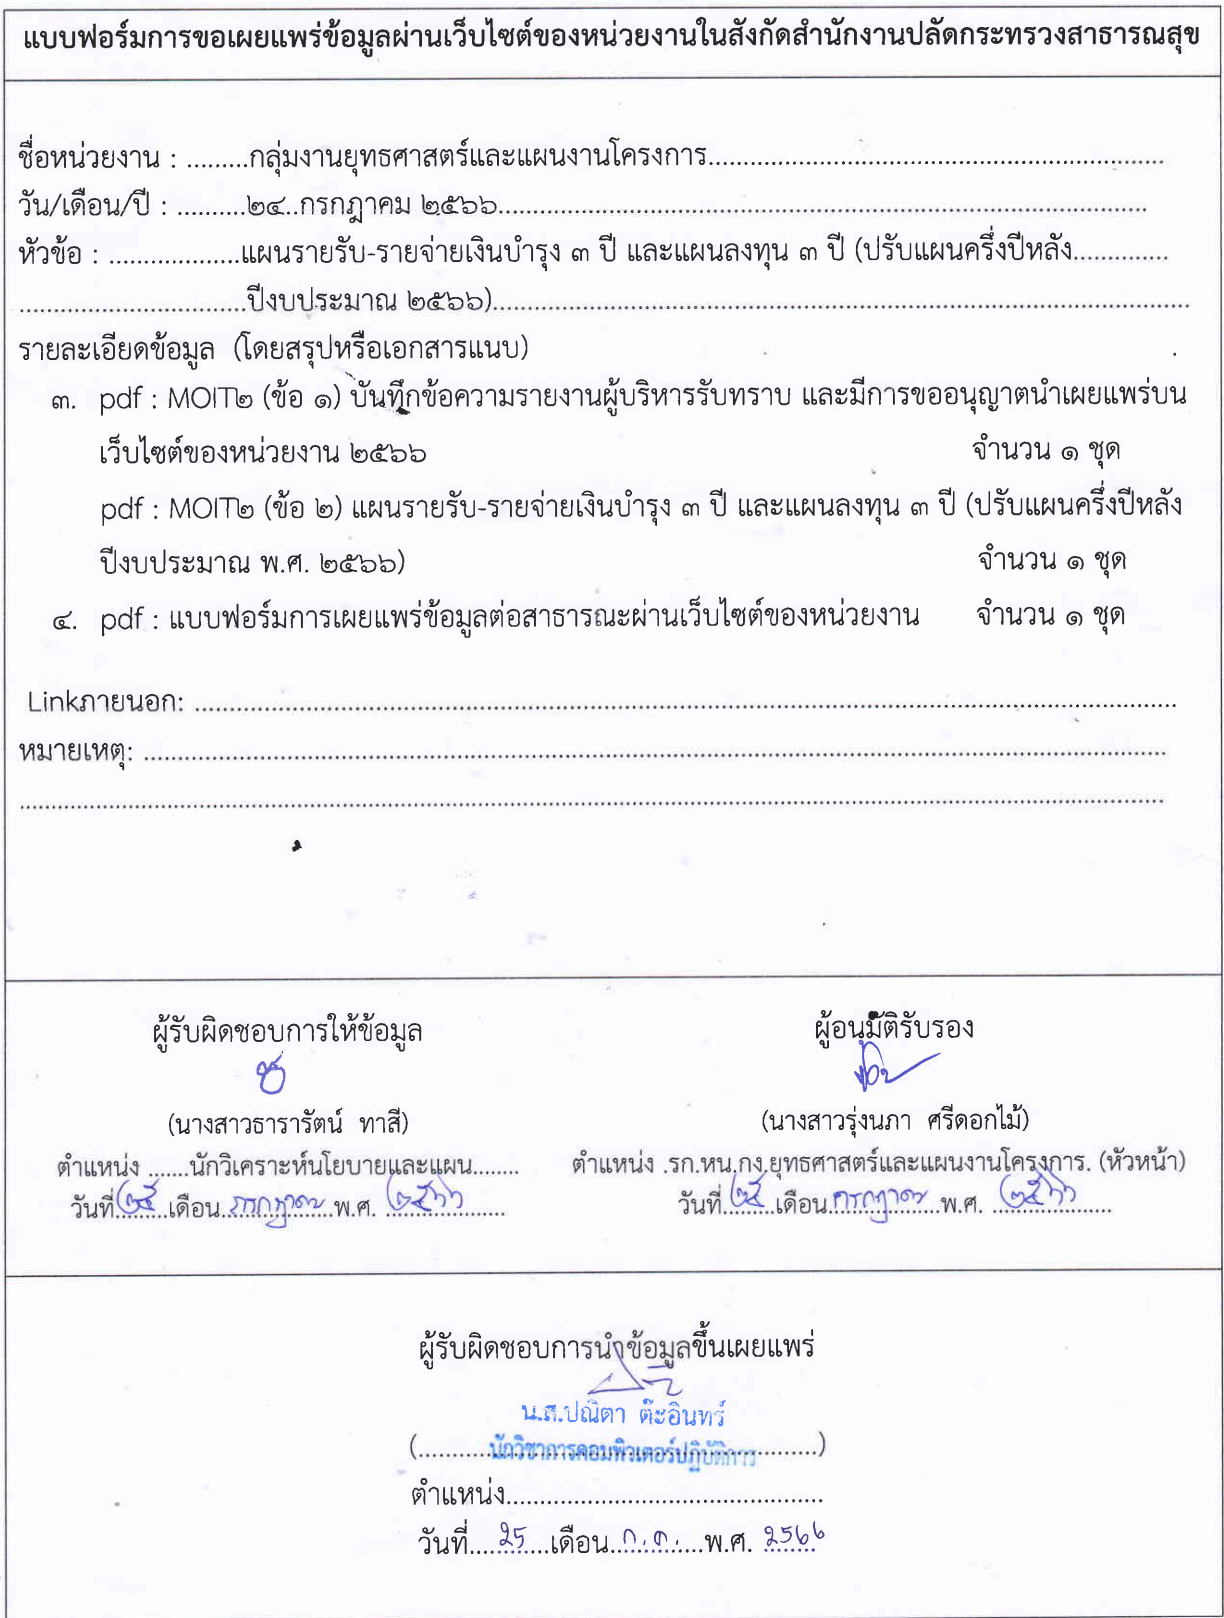 แบบฟอร์มการขอเผยแพร่ข้อมูลผ่านเว็บไซต์ของหน่วยงานในสังกัดสำนักงานปลัดกระทรวงสาธารณสุข
ชื่อหน่วยงาน : .........กลุ่มงานยุทธศาสตร์และแผนงานโครงการ..................................................................
วัน/เดือน/ปี : ..........๒๔..กรกฎาคม ๒๕๖๖..............................................................................................
หัวข้อ : ...................แผนรายรับ-รายจ่ายเงินบำรุง ๓ ปี และแผนลงทุน ๓ ปี (ปรับแผนครึ่งปีหลัง..............
.................................ปีงบประมาณ ๒๕๖๖).....................................................................................................
รายละเอียดข้อมูล (โดยสรุปหรือเอกสารแนบ)
๓. pdf : MOIT๒ (ข้อ ๑) บันทึกข้อความรายงานผู้บริหารรับทราบ และมีการขออนุญาตนำเผยแพร่บน
เว็บไซต์ของหน่วยงาน ๒๕๖๖ จำนวน ๑ ชุด
pdf : MOIT๒ (ข้อ ๒) แผนรายรับ-รายจ่ายเงินบำรุง ๓ ปี และแผนลงทุน ๓ ปี (ปรับแผนครึ่งปีหลัง
ปีงบประมาณ พ.ศ. ๒๕๖๖) จำนวน ๑ ชุด
๔. pdf : แบบฟอร์มการเผยแพร่ข้อมูลต่อสาธารณะผ่านเว็บไซต์ของหน่วยงาน จำนวน ๑ ชุด
Linkภายนอก: ..............................................................................................................................................
หมายเหตุ: ....................................................................................................................................................
ผู้รับผิดชอบการให้ข้อมูล
(นางสาวธารารัตน์ ทาสี)
ตำแหน่ง .......นักวิเคราะห์นโยบายและแผน........
วันที่ ๒๕ เดือน กรกฎาคม พ.ศ. ๒๕๖๖
ผู้อนุมัติรับรอง
(นางสาวรุ่งนภา ศรีดอกไม้)
ตำแหน่ง .รก.หน.กง.ยุทธศาสตร์และแผนงานโครงการ. (หัวหน้า)
วันที่ ๒๕ เดือน กรกฎาคม พ.ศ. ๒๕๖๖
ผู้รับผิดชอบการนำข้อมูลขึ้นเผยแพร่
น.ส.ปณิตา ต๊ะอินทร์
(..........นักวิชาการคอมพิวเตอร์ปฏิบัติการ.........)
ตำแหน่ง...............................................
วันที่....25....เดือน..ก.ค......พ.ศ. 2566